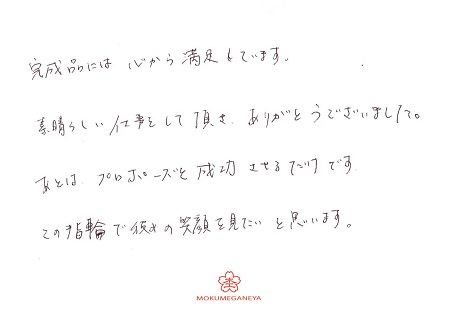 完成品には心から満足しています。
素晴らしい仕事をして頂き、ありがとうございました。
あとは、プロポーズを成功させるだけです
この指輪で彼女の笑顔を見たいと思います。
MOKUMEGANEYA